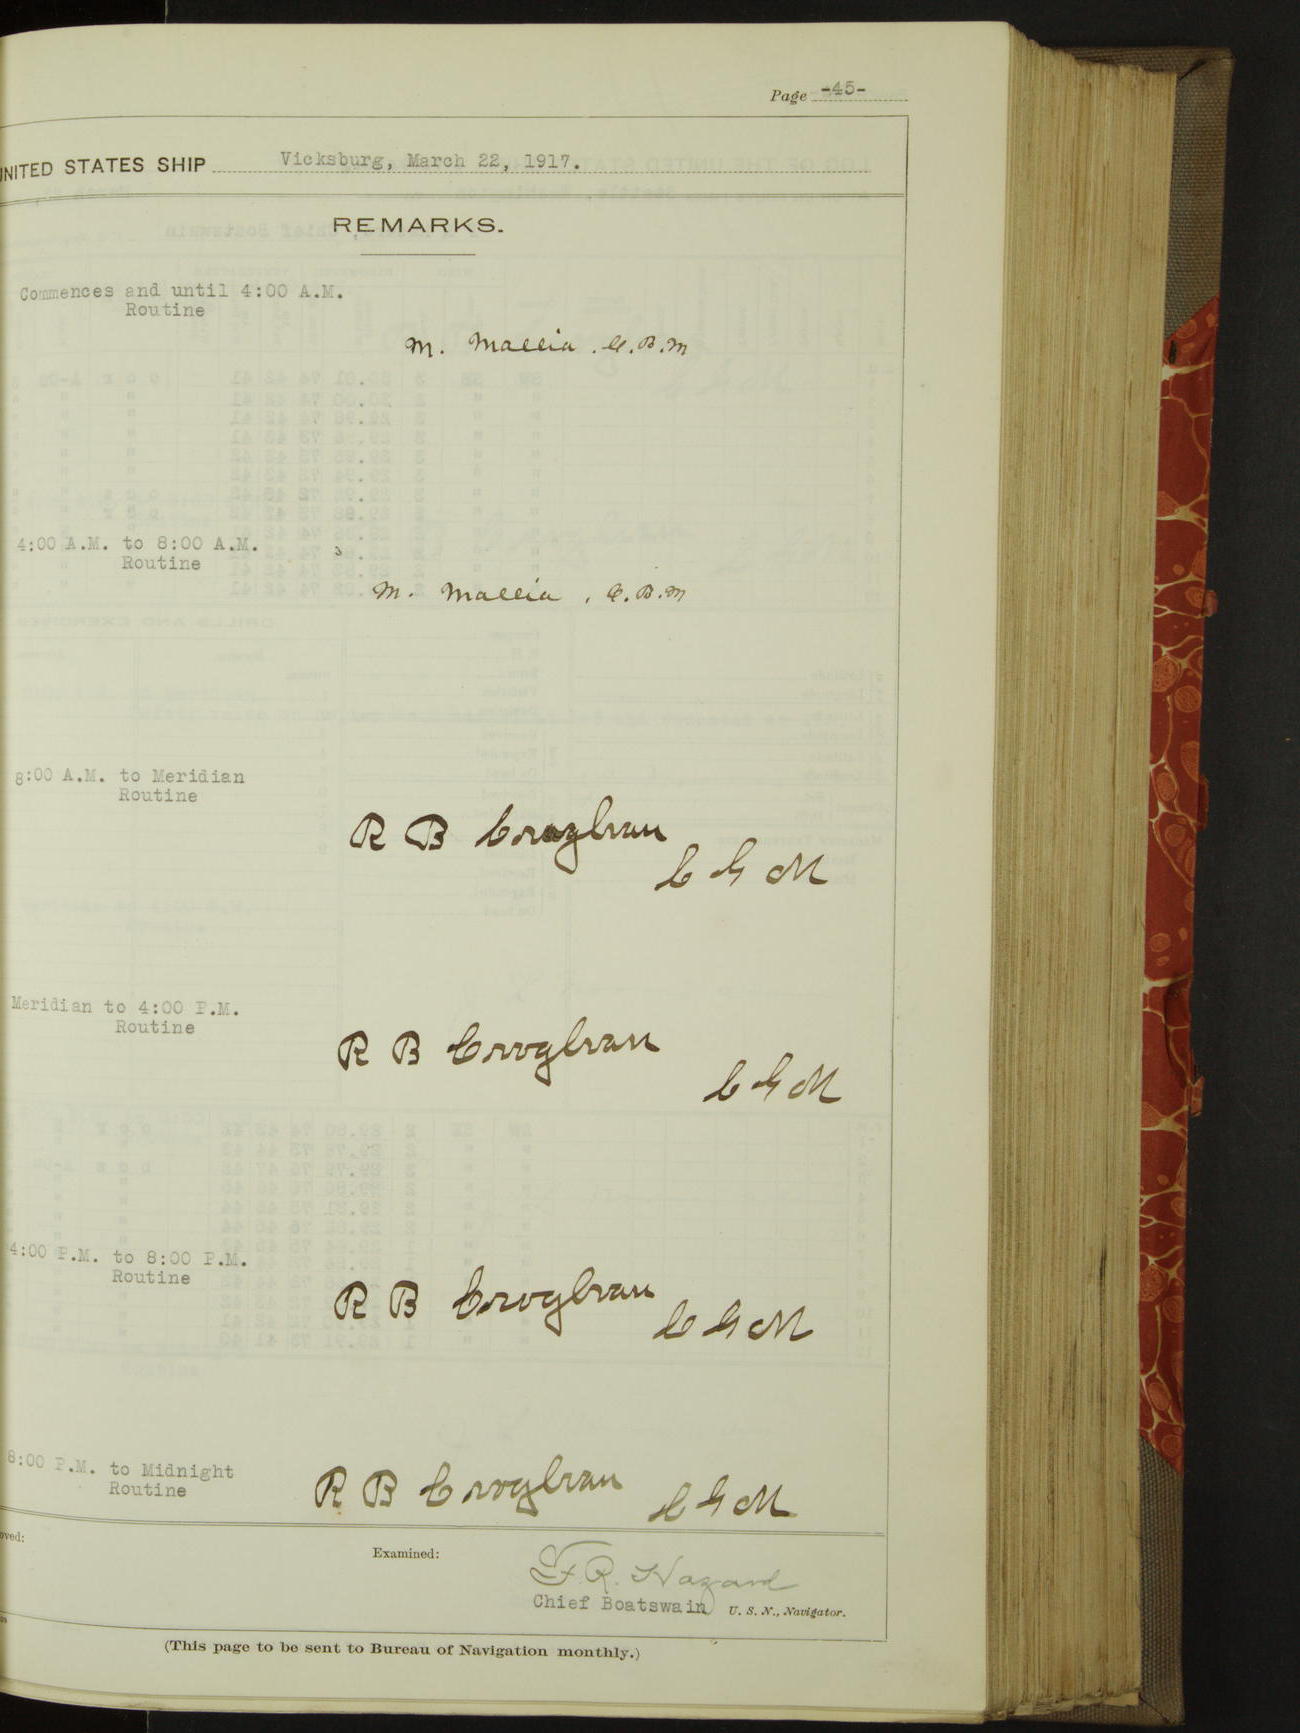 Page -45-
UNITED STATES SHIP Vicksburg, March 22, 1917.
REMARKS.
Commences and until 4:00 A.M.
Routine
M. Mallia. C.B.M
4:00 A.M. to 8:00 A.M.
Routine
M. Mallia, C.B.M
8:00 A.M. to Meridian
Routine
R B Croghan
C G M
Meridian to 4:00 P.M.
Routine
R B Croghan
C G M
4:00 P.M. to 8:00 P.M.
Routine
R B Croghan
C G M
8:00 P.M. to Midnight
Routine
R B Croghan C G M
oved:
Examined:
F.R. Hazard
Chief Boatswain U. S. N., Navigator.
(This page to be sent to Bureau of Navigation monthly.)